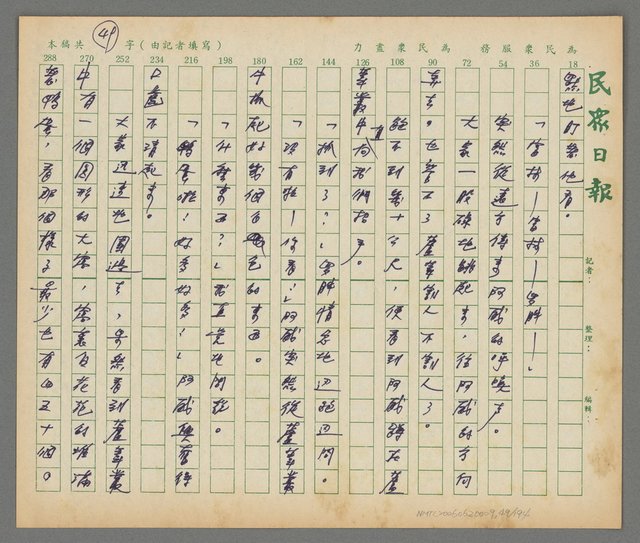 民眾日報
記者：
整理：
編輯：
為民眾服務 為民眾盡力
本稿共 字（由記者填寫）
49
18 36 54 72 90 108 126 144 162 180 198 216 234 252 270 288
默地盯著他看。
「富村——富村——男胖——」
突然從遠方傳來阿威的呼喚聲。
大家一股碌地跳起來，往阿威的方向
奔去。也管不了蘆葦割人不割人了。
跑不到幾十公尺，便看到阿威蹲在蘆
葦叢中向我們招手。
「抓到了？」男胖情急地邊跑邊問。
「噓有啦——你看！」阿威突然從蘆葦叢
中抓起好幾個白色的東西。
「什麼東西？」我直覺地問說。
「鴨蛋啦！好多好多！」阿威興奮得
口齒不清起來。
大家迅速地圍過去，果然看到蘆葦叢
中有一個圓形的大窩，窩裏白花花的堆滿
著鴨蛋，看那個樣子最少也有四五十個。
NMTL20050520009,49/194